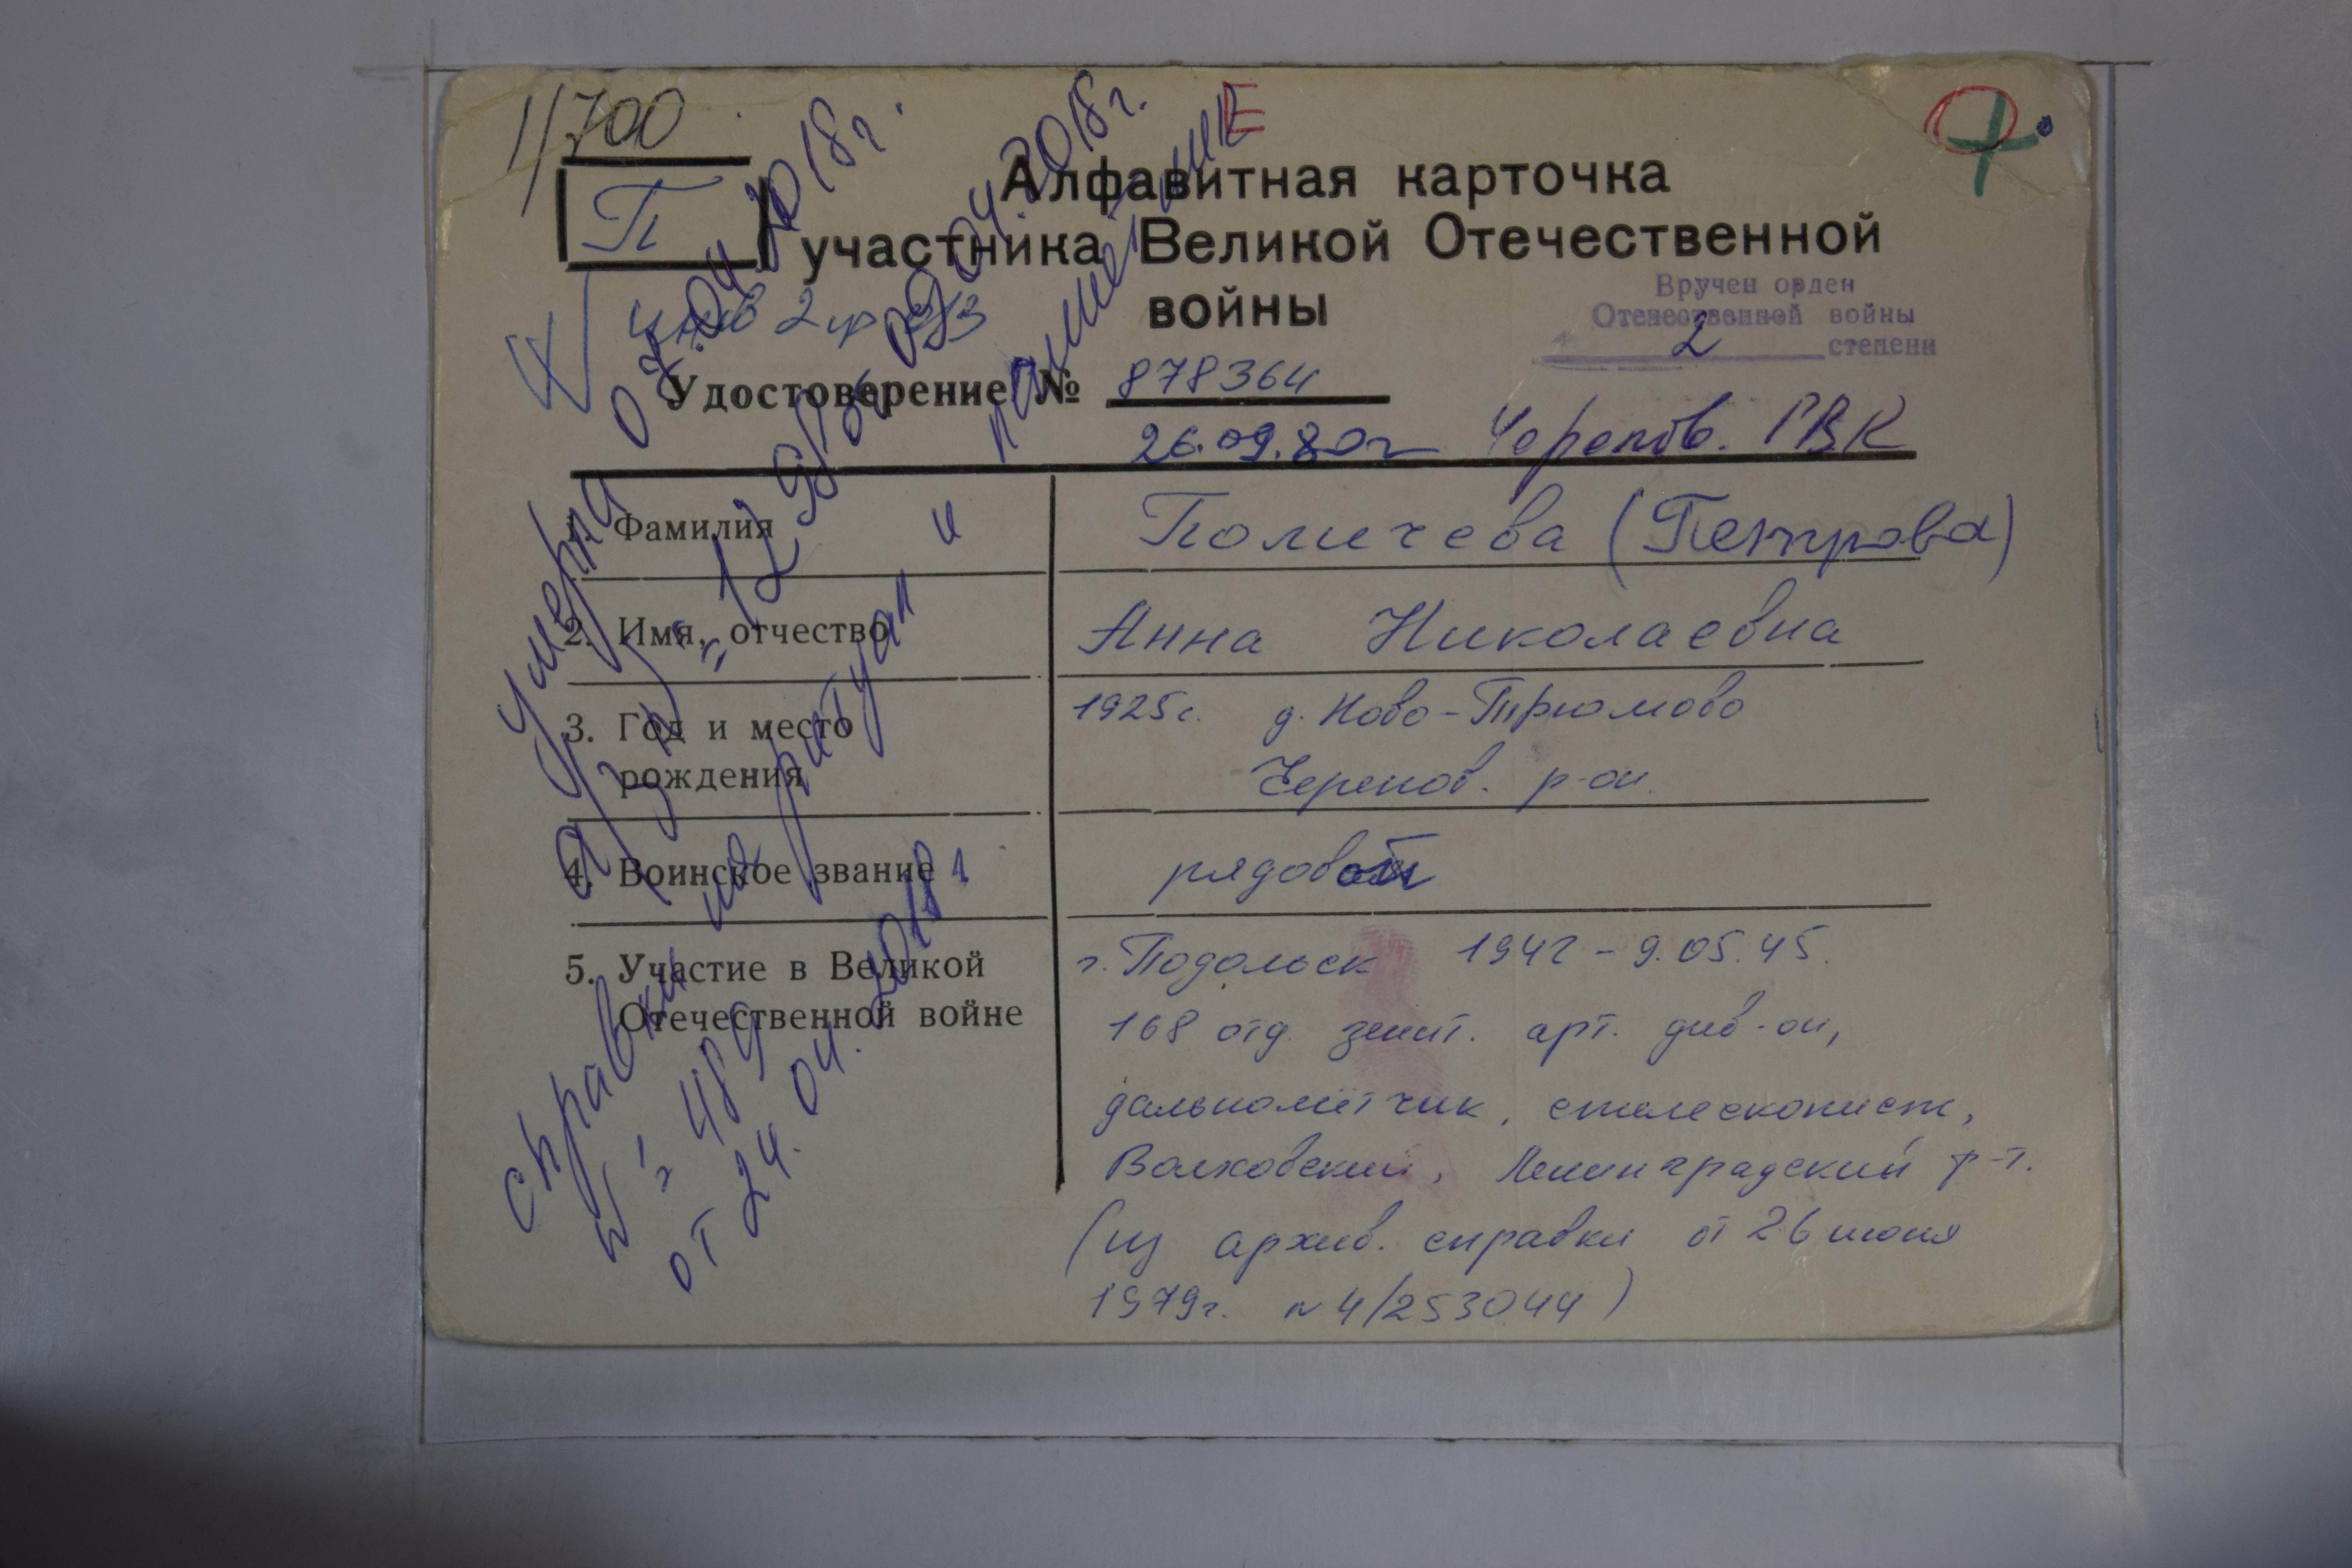 1/700
П
Е
Алфавитная карточка
участника Великой Отечественной
войны
инв 2 гр
Вручен орден
Отечественной войны
2 степени
Удостоверение № 878364
26.09.80г Черепов. ГВК
1. Фамилия Поличева (Петрова)
2. Имя, отчество Анна Николаевна
3. Год и место рождения 1925г. д. Ново-Трюмово
Черепов. р-он.
4. Воинское звание рядовой
5. Участие в Великой
Отечественной войне
г. Подольск 1942 - 9.05.45.
168 отд. зенит. арт. див-он,
дальнометчик, стелескопист,
Волховский, Ленинградский р-т.
(из архив. справки от 26 июня
1979г. №4/253044)
Умерла 07.04.2018г.
а/з н "1298/36 09.04.2018г.
справки на ритуал" и памятник
№ 489
от 24.04.2018г.